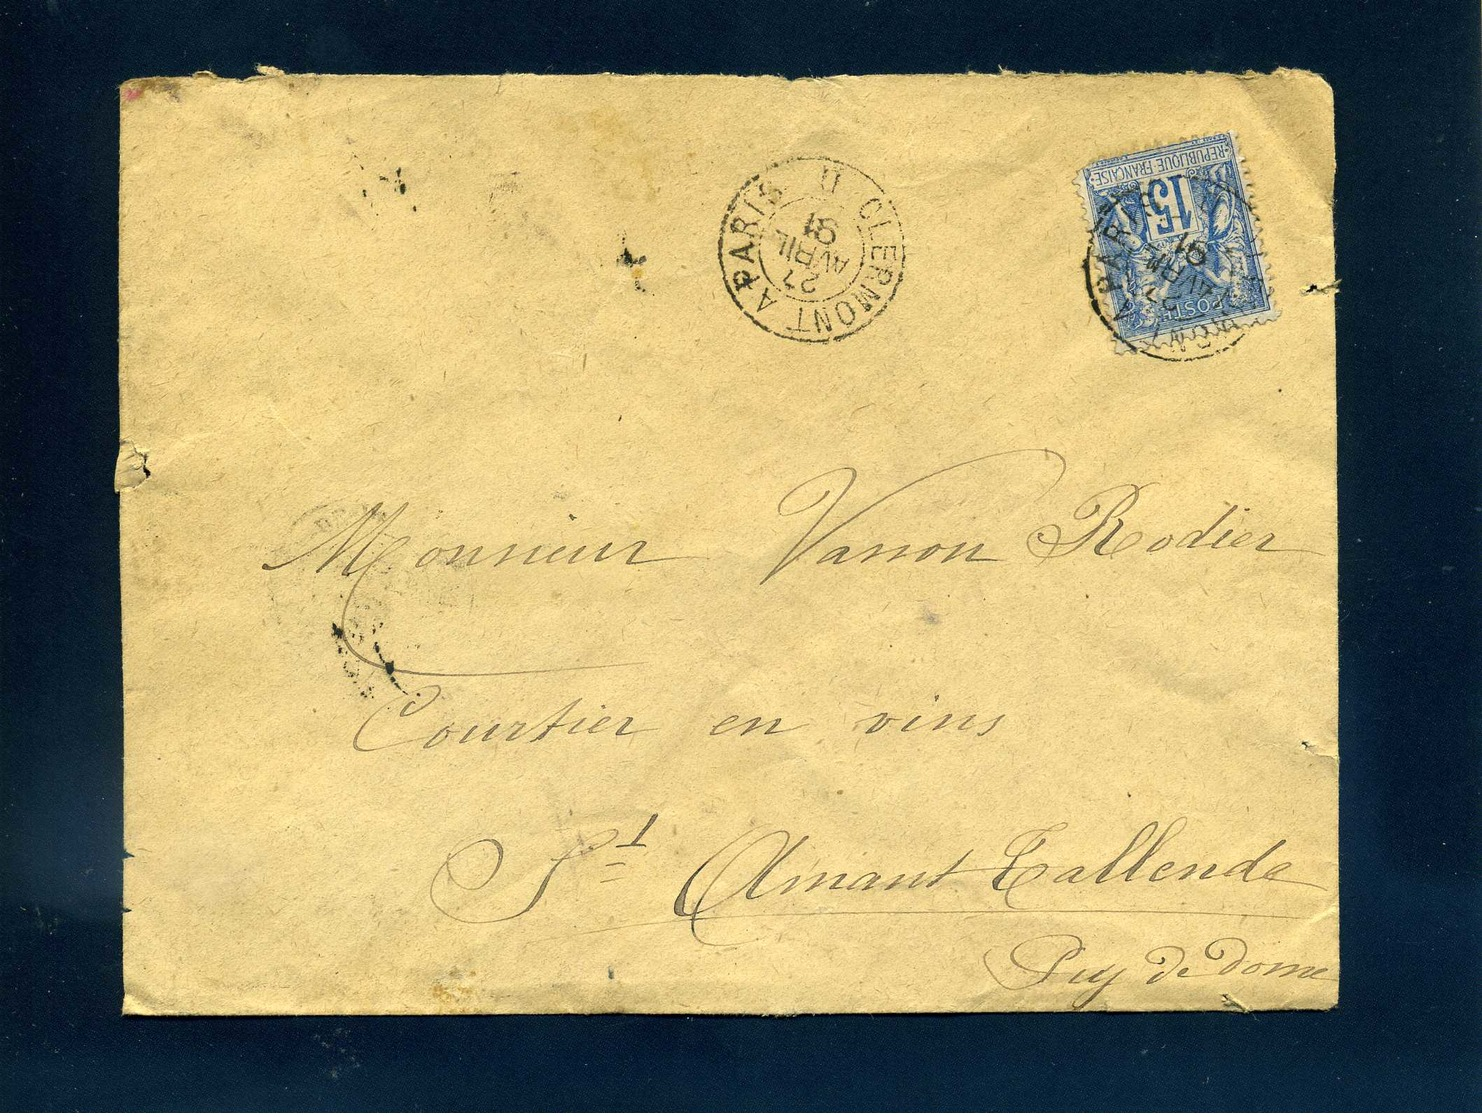 CLERMONT A PARIS
27
AVRIL
91
REPUBLIQUE FRANÇAISE
15
POSTES
A PARIS
27
AVRIL
91
Monsieur Vasson Rodier
Courtier en vins
St Amant Tallende
Puy de Dome